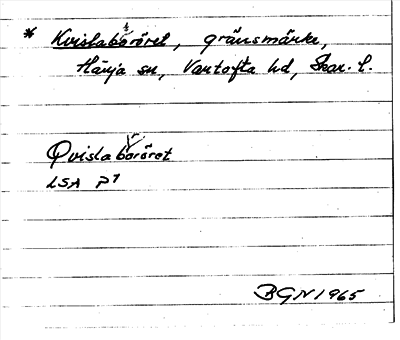 * Kvislaboröret, gränsmärke,
Härja sn, Vartofta hd, Skar. l.
Qvislaboröret
LSA P7
BGN 1965